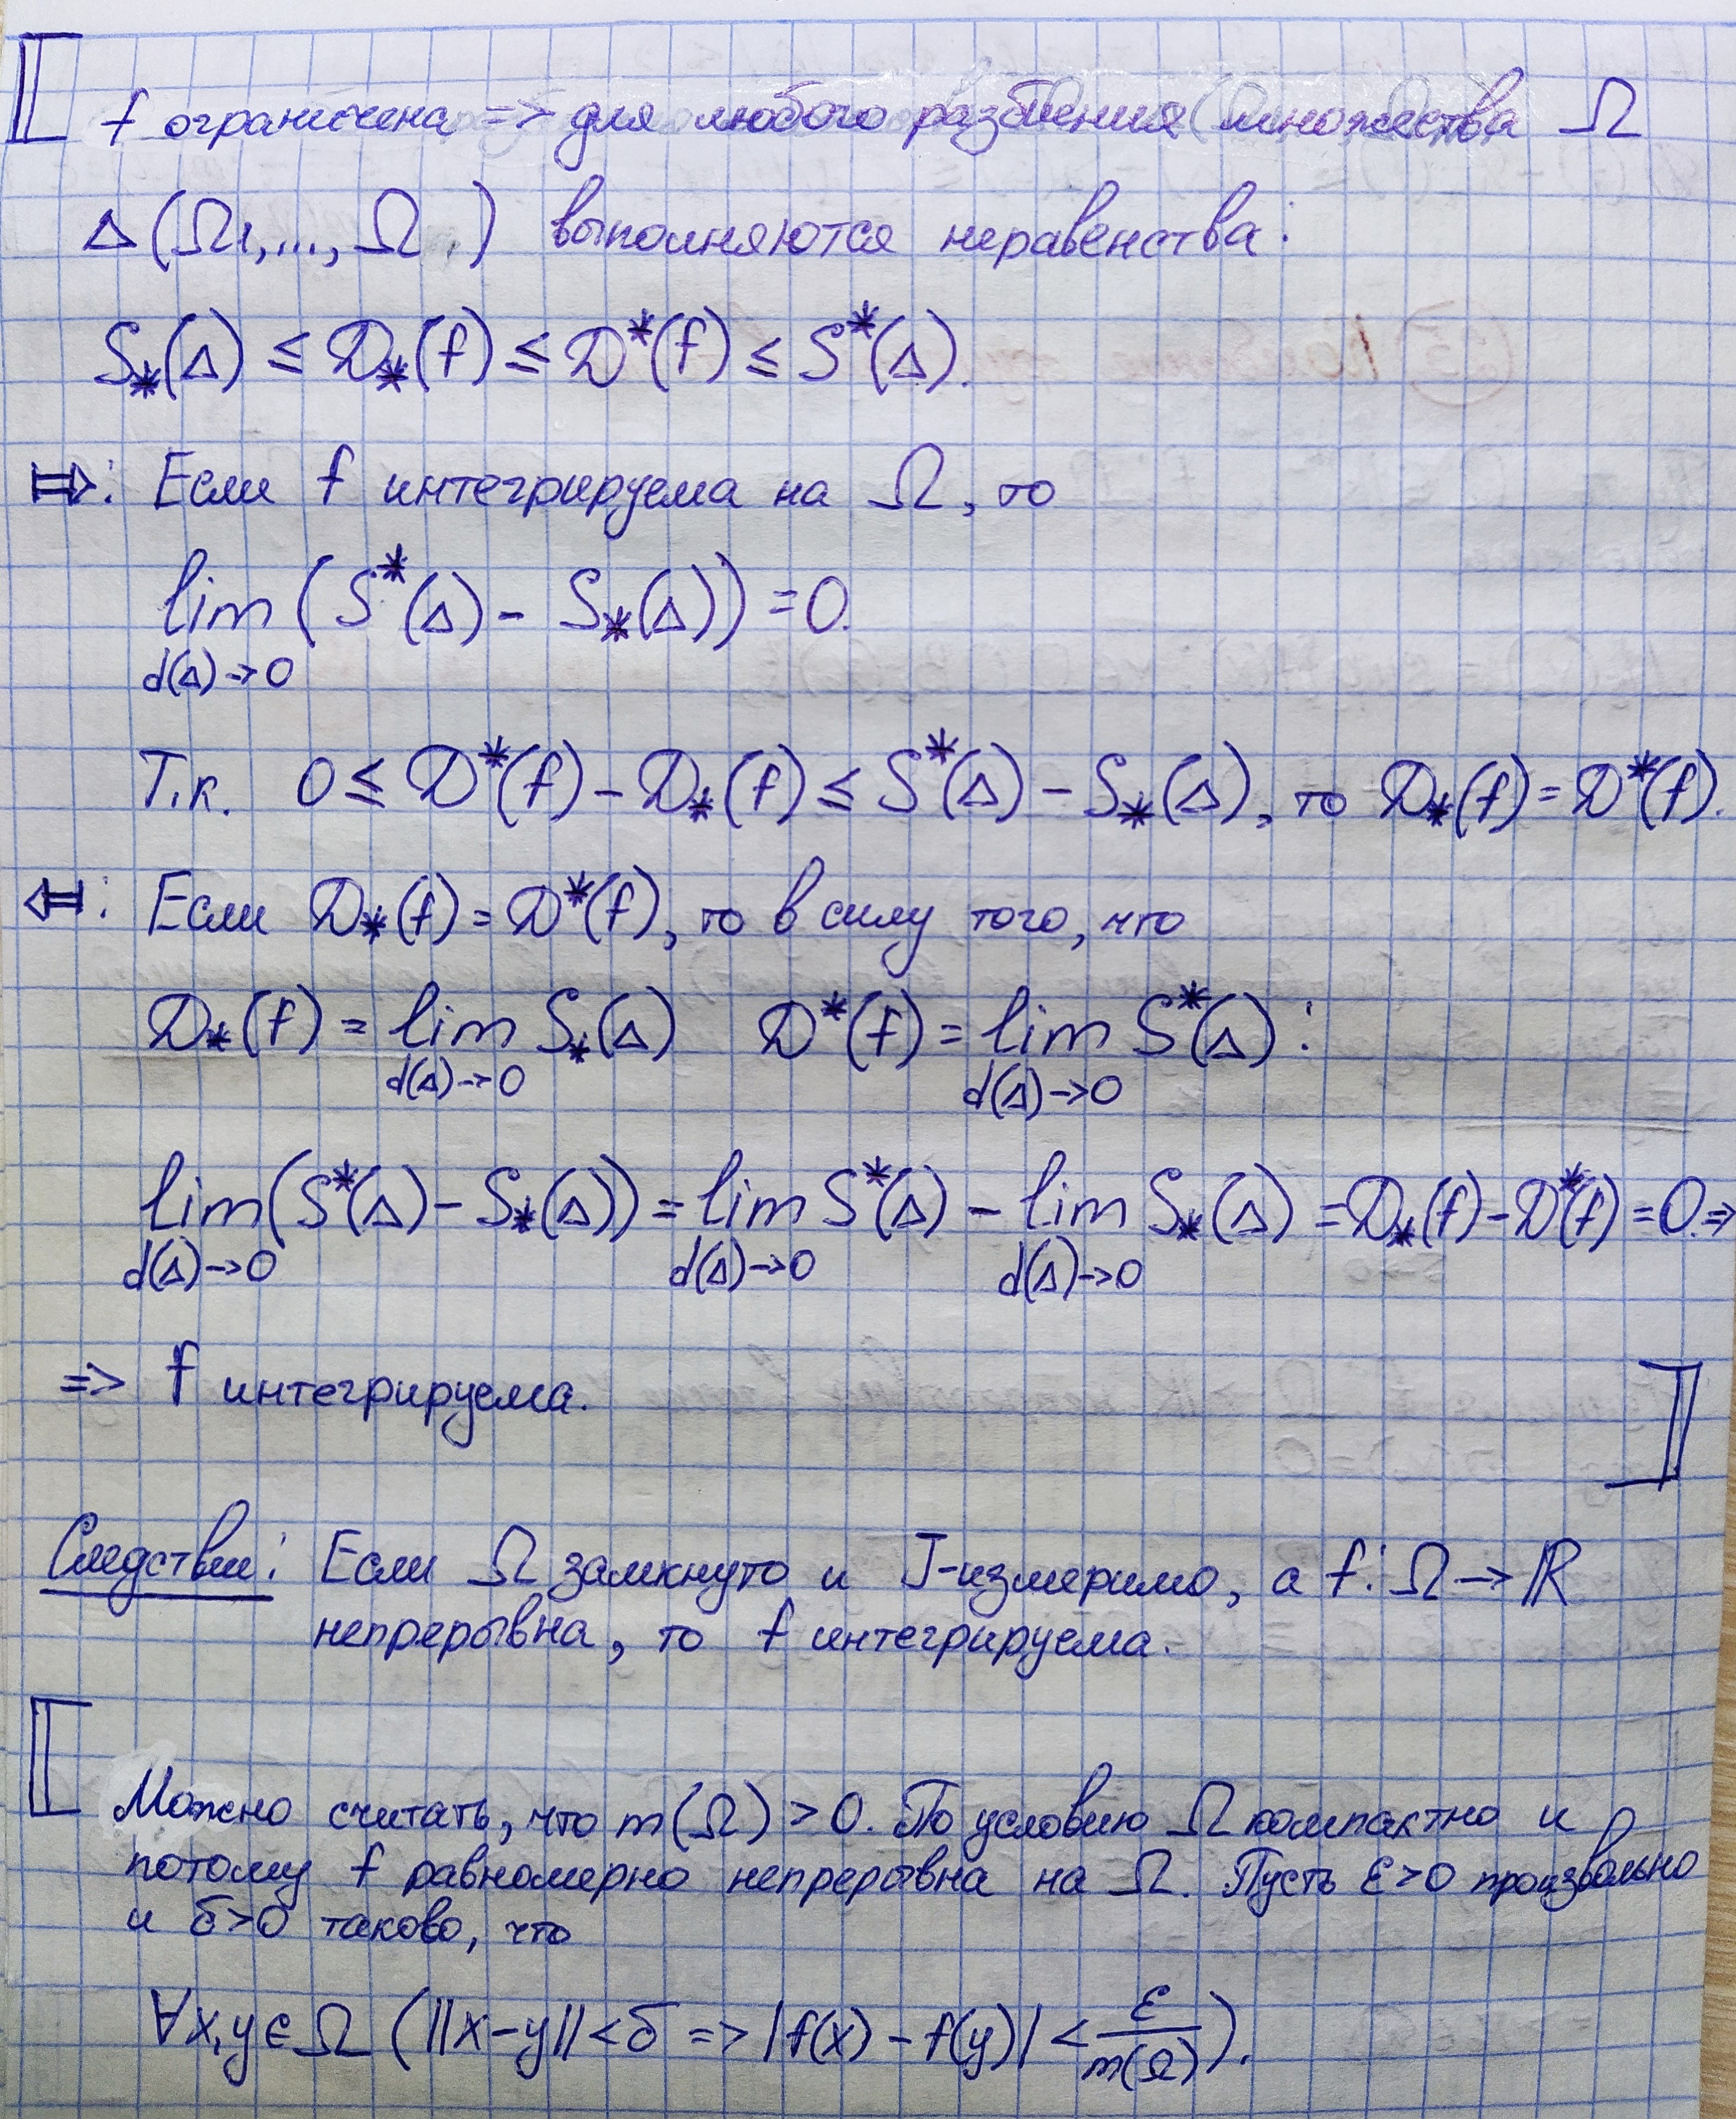 f ограничена => для любого разбиения множества Ω
Δ(Ω1,..., Ω ) выполняются неравенства:
S_*(Δ) ≤ D_*(f) ≤ D^*(f) ≤ S^*(Δ).
⇒: Если f интегрируема на Ω, то
lim (S^*(Δ) - S_*(Δ)) = 0.
d(Δ)→0
Т.к. 0 ≤ D^*(f) - D_*(f) ≤ S^*(Δ) - S_*(Δ), то D_*(f) = D^*(f).
⇐: Если D_*(f) = D^*(f), то в силу того, что
D_*(f) = lim S_*(Δ) D^*(f) = lim S^*(Δ):
d(Δ)→0 d(Δ)→0
lim (S^*(Δ) - S_*(Δ)) = lim S^*(Δ) - lim S_*(Δ) = D_*(f) - D^*(f) = 0. =>
d(Δ)→0 d(Δ)→0 d(Δ)→0
=> f интегрируема.
Следствие: Если Ω замкнуто и J-измеримо, а f: Ω → ℝ
непрерывна, то f интегрируема.
Можно считать, что m(Ω) > 0. По условию Ω компактно и
потому f равномерно непрерывна на Ω. Пусть ε>0 произвольно
и δ>0 таково, что
∀x,y ∈ Ω (||x-y|| < δ => |f(x) - f(y)| < ε/m(Ω)).